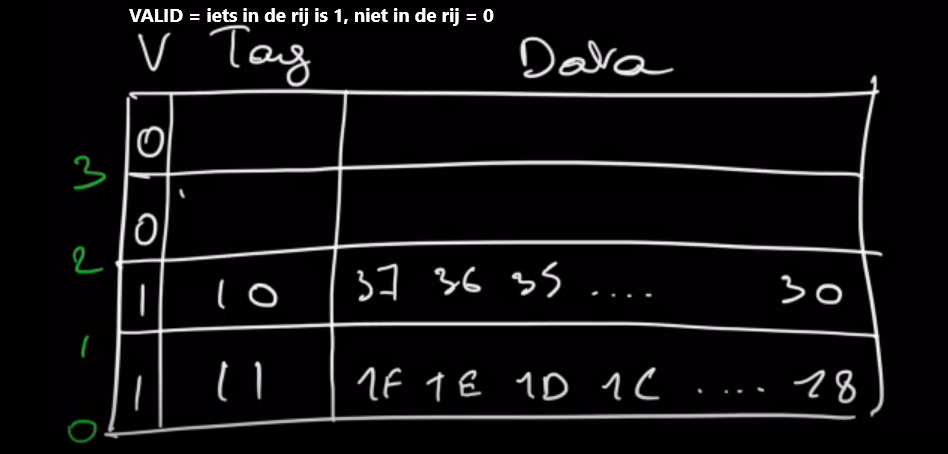 VALID = iets in de rij is 1, niet in de rij = 0
V Tag Data
0
3
0
2
1 10 37 36 35 .... 30
1
1 11 1F 1E 1D 1C .... 18
0